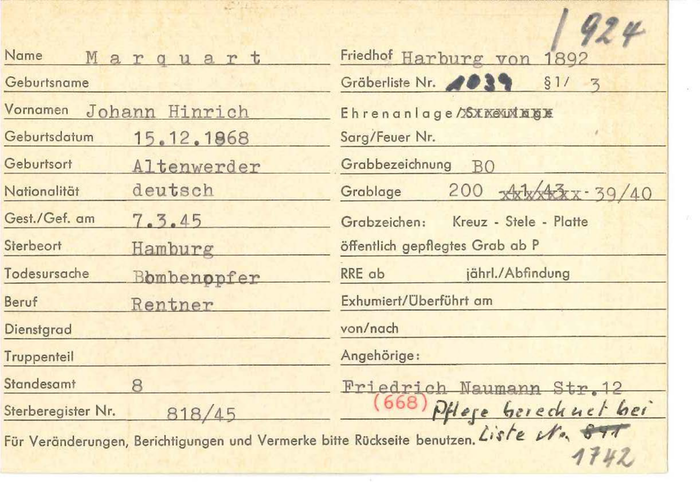 1924
Name Marquart
Geburtsname
Vornamen Johann Hinrich
Geburtsdatum 15.12.1868
Geburtsort Altenwerder
Nationalität deutsch
Gest./Gef. am 7.3.45
Sterbeort Hamburg
Todesursache Bombenopfer
Beruf Rentner
Dienstgrad
Truppenteil
Standesamt 8
Sterberegister Nr. 818/45
Friedhof Harburg von 1892
Gräberliste Nr. 1039 §1/ 3
Ehrenanlage/
Sarg/Feuer Nr.
Grabbezeichnung BO
Grablage 200 41/43 - 39/40
Grabzeichen: Kreuz - Stele - Platte
öffentlich gepflegtes Grab ab P
RRE ab jährl./Abfindung
Exhumiert/Überführt am
von/nach
Angehörige:
Friedrich Naumann Str.12
(668) Pflege berechnet bei
Liste No. 841
1742
Für Veränderungen, Berichtigungen und Vermerke bitte Rückseite benutzen.